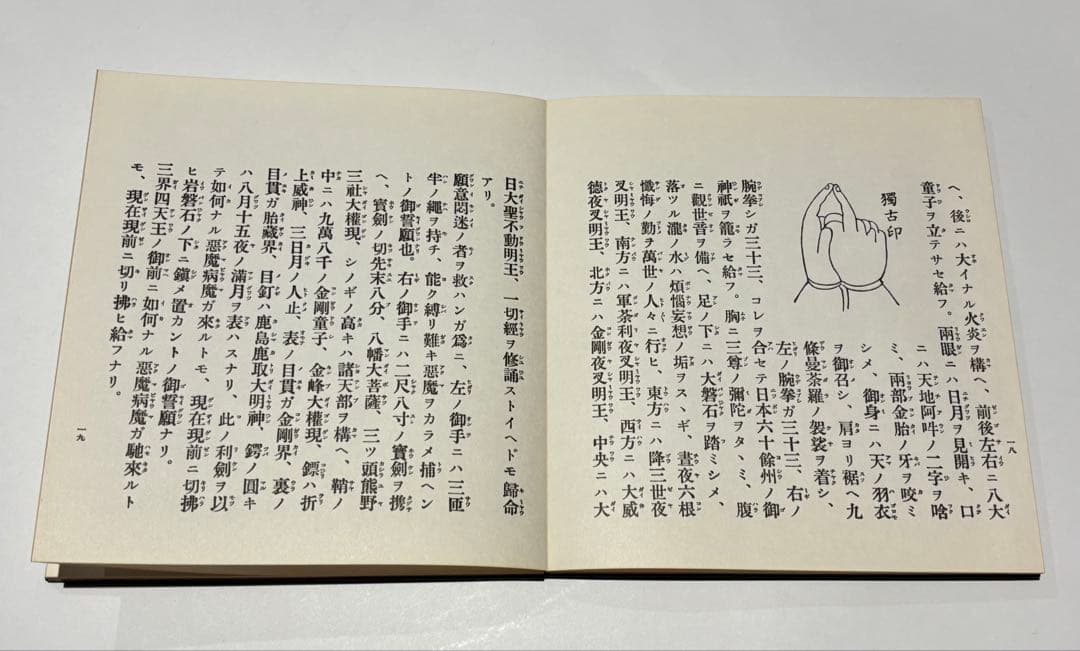 ヘ、後ニハ大イナル火炎ヲ構ヘ、前後左右ニ八大
童子ヲ立テサセ給フ。兩眼ニハ日月ヲ見開キ、口
獨古印
ニハ天地阿吽ノ二字ヲ唅
ミ、兩部金胎ノ牙ヲ咬ミ
シメ、御身ニハ天ノ羽衣
ヲ御召シ、肩ヨリ裾ヘ九
條曼荼羅ノ袈裟ヲ着シ、
左ノ腕拳ガ三十三、右ノ
腕拳シガ三十三、コレヲ合セテ日本六十餘州ノ御
神祇ヲ籠ラセ給フ。胸ニ三尊ノ彌陀ヲタヽミ、腹
ニ觀世音ヲ備ヘ、足ノ下ニハ大磐石ヲ踏ミシメ、
落ツル瀧ノ水ハ煩惱妄想ノ垢ヲスヽギ、晝夜六根
懺悔ノ勤ヲ萬世ノ人々ニ行ヒ、東方ニハ降三世夜
叉明王、南方ニハ軍荼利夜叉明王、西方ニハ大威
德夜叉明王、北方ニハ金剛夜叉明王、中央ニハ大
一八
日大聖不動明王、一切經ヲ修誦ストイヘドモ歸命
アリ。
願意悶迷ノ者ヲ救ハンガ爲ニ、左ノ御手ニハ三匝
半ノ繩ヲ持チ、能ク縛リ難キ惡魔ヲカラメ捕ヘン
トノ御誓願也。右ノ御手ニハ二尺八寸ノ寶劍ヲ携
ヘ、寶劍ノ切先末八分、八幡大菩薩、三ツ頭熊野
三社大權現、シノギノ高キハ諸天部ヲ構ヘ、鞘ノ
中ニハ九萬八千ノ金剛童子、金峰大權現、鏢ハ折
上威神、三日月ノ人止、表ノ目貫ガ金剛界、裏ノ
目貫ガ胎藏界、目釘ハ鹿島鹿取大明神、鍔ノ圓キ
ハ八月十五夜ノ滿月ヲ表ハスナリ、此ノ利劍ヲ以
テ如何ナル惡魔病魔ガ來ルトモ、現在現前ニ切拂
ヒ岩磐石ノ下ニ鎭メ置カントノ御誓願ナリ。
三界四天王ノ御前ニ如何ナル惡魔病魔ガ馳來ルト
モ、現在現前ニ切リ拂ヒ給フナリ。
一九